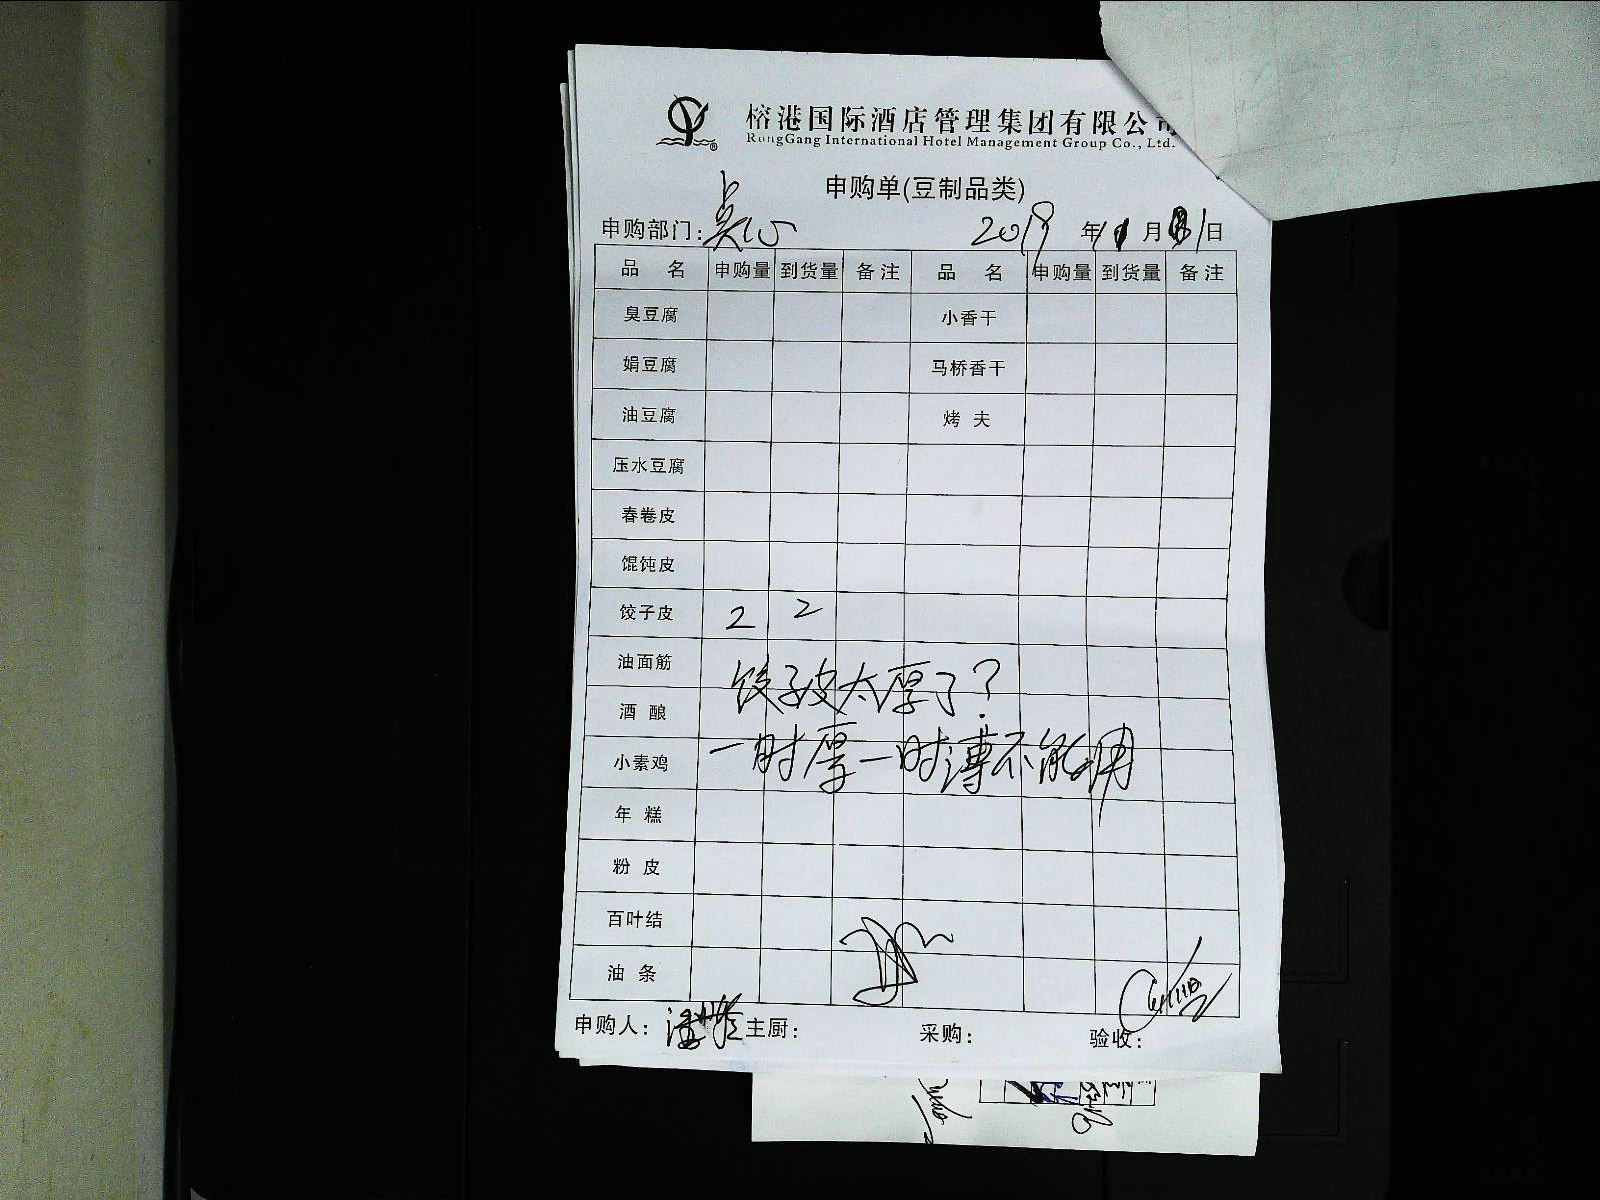 榕港国际酒店管理集团有限公司
RongGang International Hotel Management Group Co., Ltd.
申购单(豆制品类)
申购部门: 点心 2019 年 月 日
品 名 申购量 到货量 备注 品 名 申购量 到货量 备注
臭豆腐 小香干
娟豆腐 马桥香干
油豆腐 烤 夫
压水豆腐
春卷皮
馄饨皮
饺子皮 2 2
油面筋
饺子皮太厚了?
酒 酿
小素鸡
一时厚一时薄不能用
年 糕
粉 皮
百叶结
油 条
申购人: 主厨: 采购: 验收: